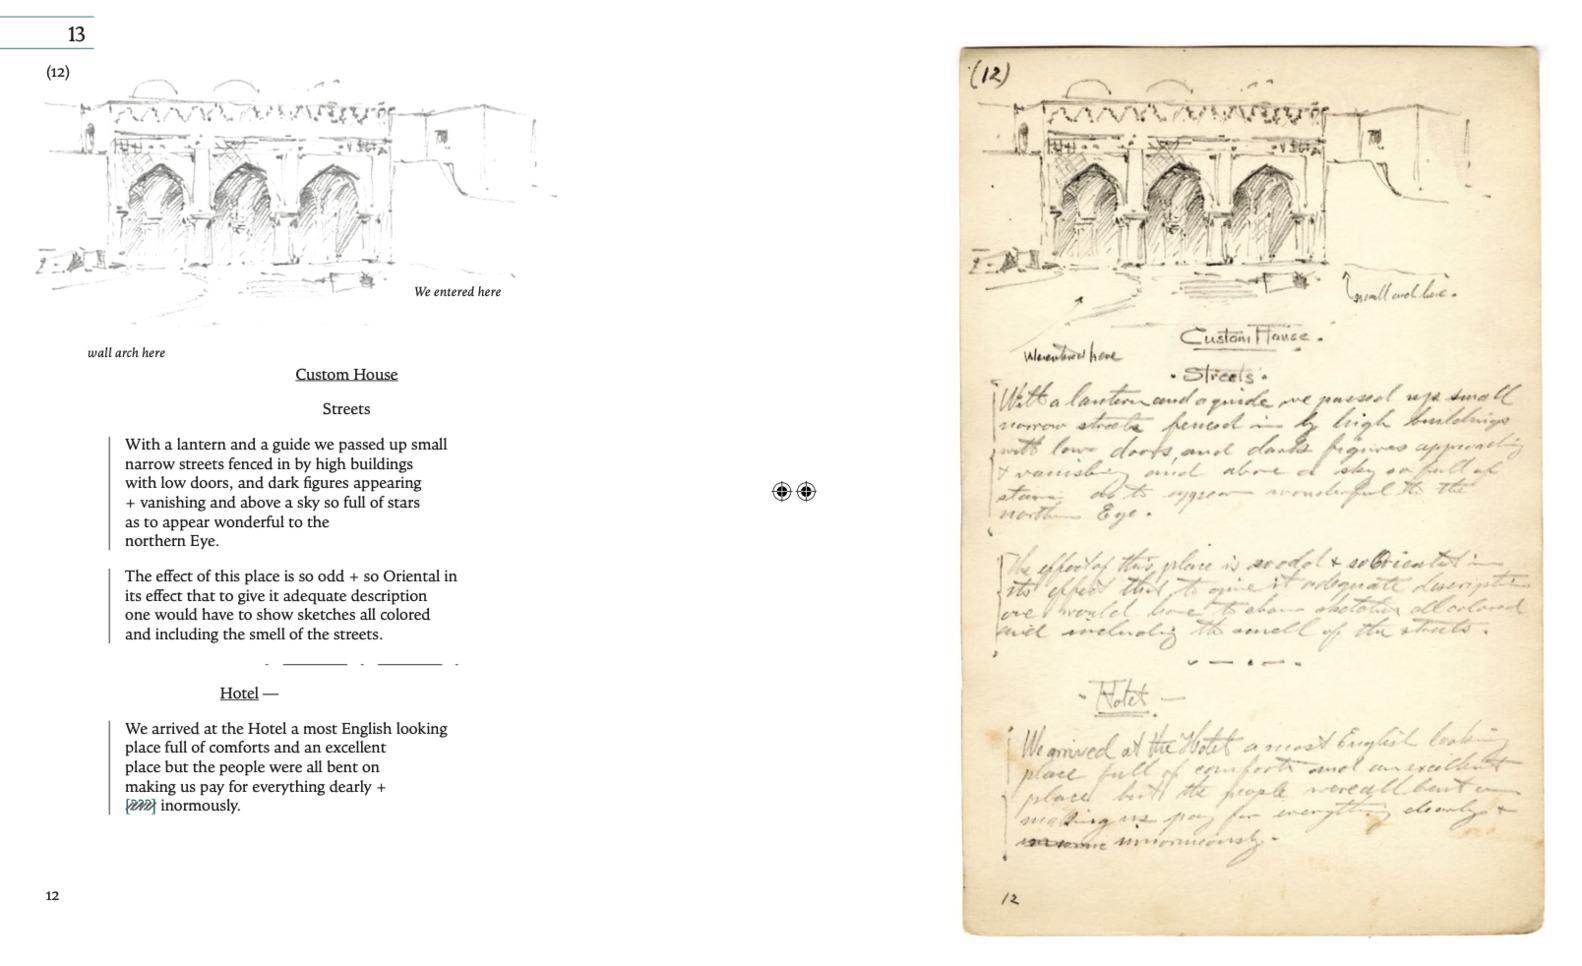 13
(12)
We entered here
wall arch here
Custom House
Streets
With a lantern and a guide we passed up small
narrow streets fenced in by high buildings
with low doors, and dark figures appearing
+ vanishing and above a sky so full of stars
as to appear wonderful to the
northern Eye.
The effect of this place is so odd + so Oriental in
its effect that to give it adequate description
one would have to show sketches all colored
and including the smell of the streets.
Hotel —
We arrived at the Hotel a most English looking
place full of comforts and an excellent
place but the people were all bent on
making us pay for everything dearly +
[???] inormously.
12
(12)
small arch here.
Custom House.
We entered here
Streets
With a lantern and a guide we passed up small
narrow streets fenced in by high buildings
with low doors, and dark figures approaching
+ vanishing and above a sky so full of
stars as to appear wonderful to the
northern Eye.
The effect of this place is so odd + so Oriental in
its effect that to give it adequate description
one would have to show sketches all colored
and including the smell of the streets.
Hotel —
We arrived at the Hotel a most English looking
place full of comforts and an excellent
place but the people were all bent on
making us pay for everything dearly +
inormously.
12